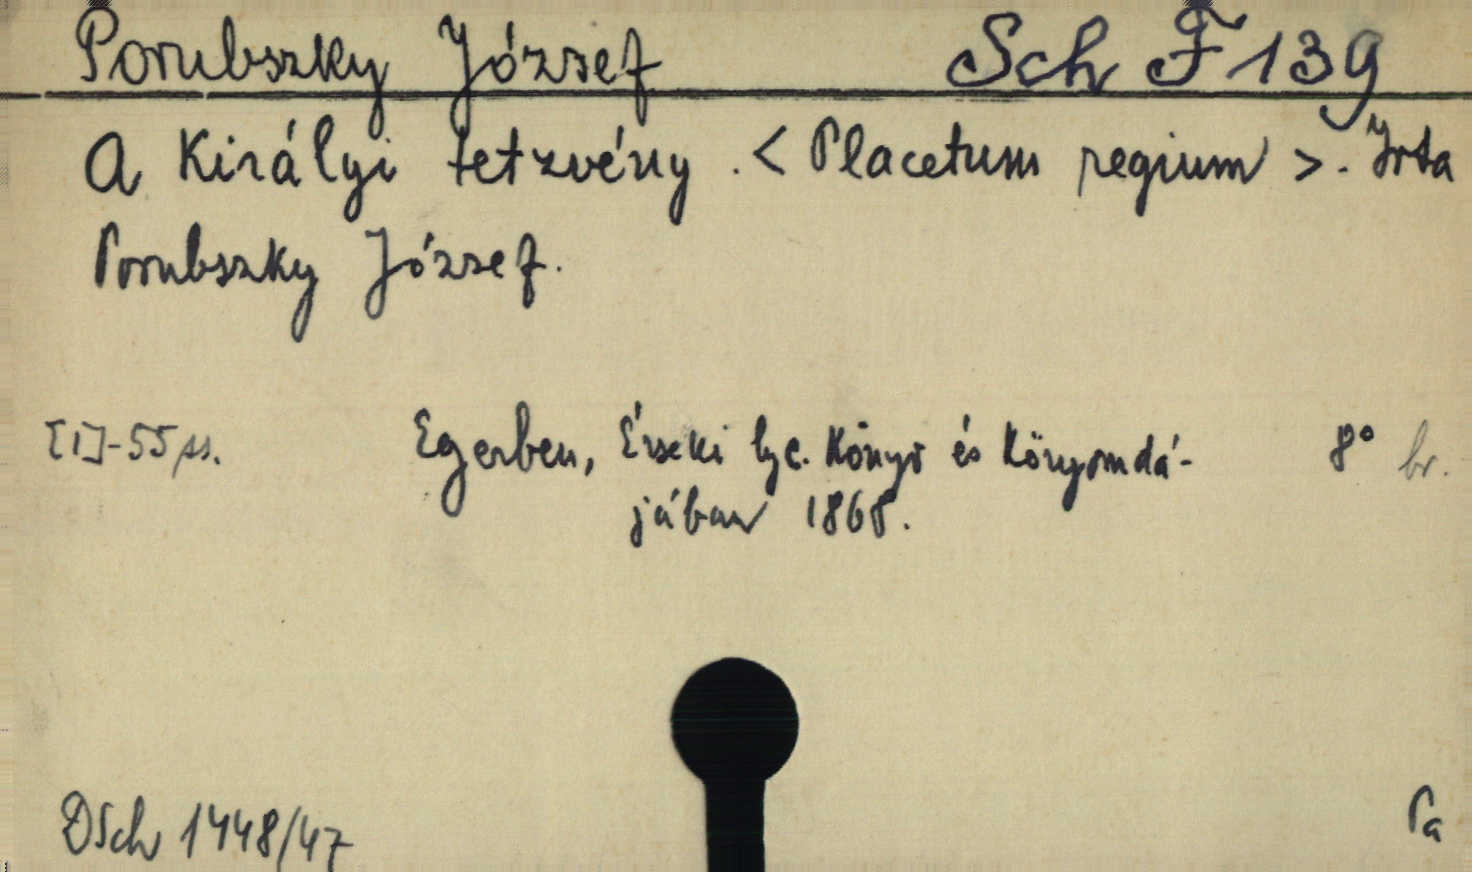 Porubszky József Sch F 139
A Királyi tetzvény. < Placetum regium >. Irta
Porubszky József.
[1]-55 ss. Egerben, Érseki lyc. Könyv és Könyomdá- 8° br.
jában 1868.
DSch 1448/47 Pa